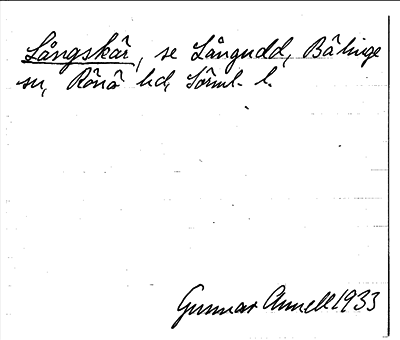 Långskär, se Långudd, Bälinge
sn, Rönö hd, Södml. l.
Gunnar Annell 1933